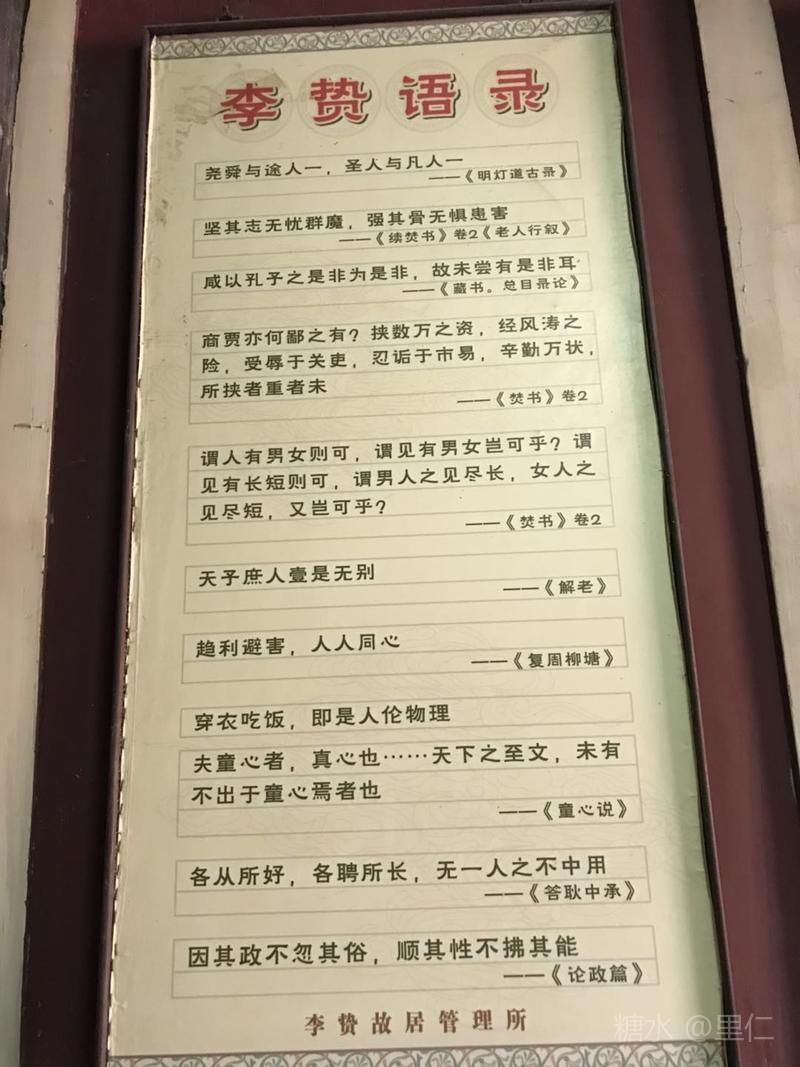 李贽语录
尧舜与途人一，圣人与凡人一
——《明灯道古录》
坚其志无忧群魔，强其骨无惧患害
——《续焚书》卷2《老人行叙》
咸以孔子之是非为是非，故未尝有是非耳
——《藏书。总目录论》
商贾亦何鄙之有？挟数万之资，经风涛之
险，受辱于关吏，忍诟于市易，辛勤万状，
所挟者重者未
——《焚书》卷2
谓人有男女则可，谓见有男女岂可乎？谓
见有长短则可，谓男人之见尽长，女人之
见尽短，又岂可乎？
——《焚书》卷2
天子庶人壹是无别
——《解老》
趋利避害，人人同心
——《复周柳塘》
穿衣吃饭，即是人伦物理
夫童心者，真心也……天下之至文，未有
不出于童心焉者也
——《童心说》
各从所好，各聘所长，无一人之不中用
——《答耿中承》
因其政不忽其俗，顺其性不拂其能
——《论政篇》
李贽故居管理所
糖水 @里仁